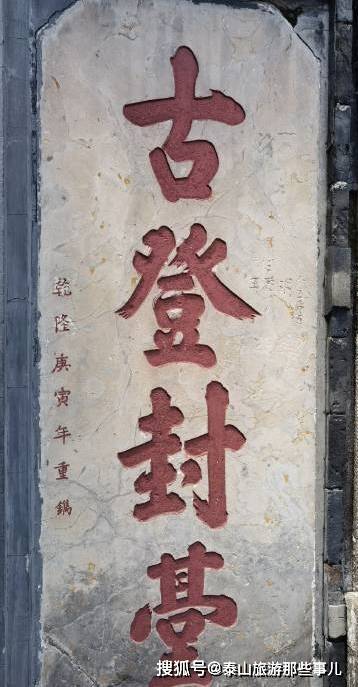 古登封臺
乾隆庚寅年重鐫
搜狐号@泰山旅游那些事儿